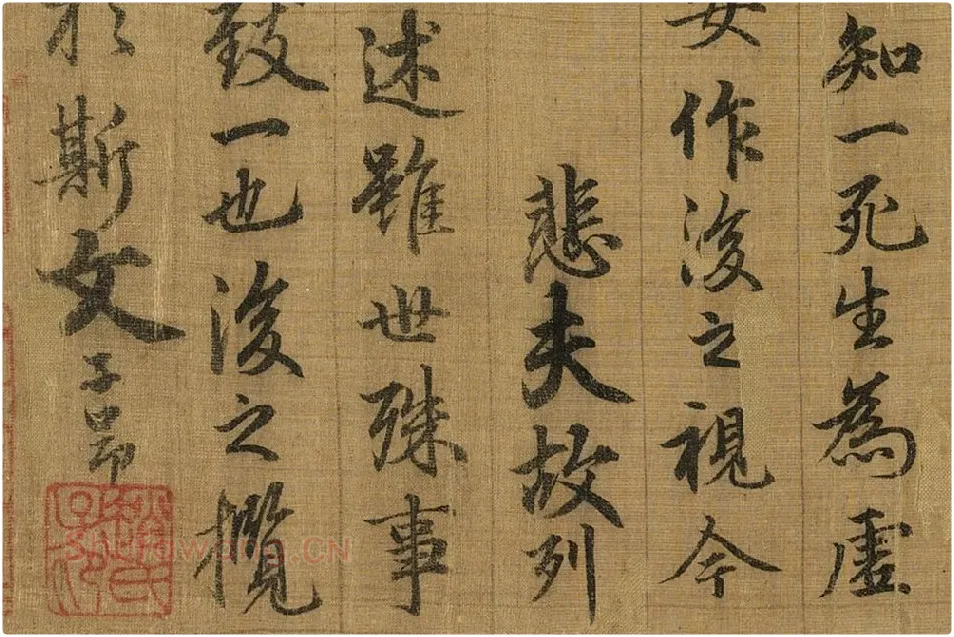 知一死生為虛
妄作後之視今
悲夫故列
述雖世殊事
致一也後之攬
於斯文子昂
趙氏子昂